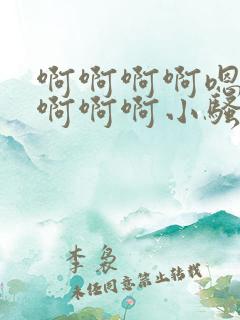 啊啊啊啊嗯
啊啊啊小骚
李袅
未经同意禁止转载